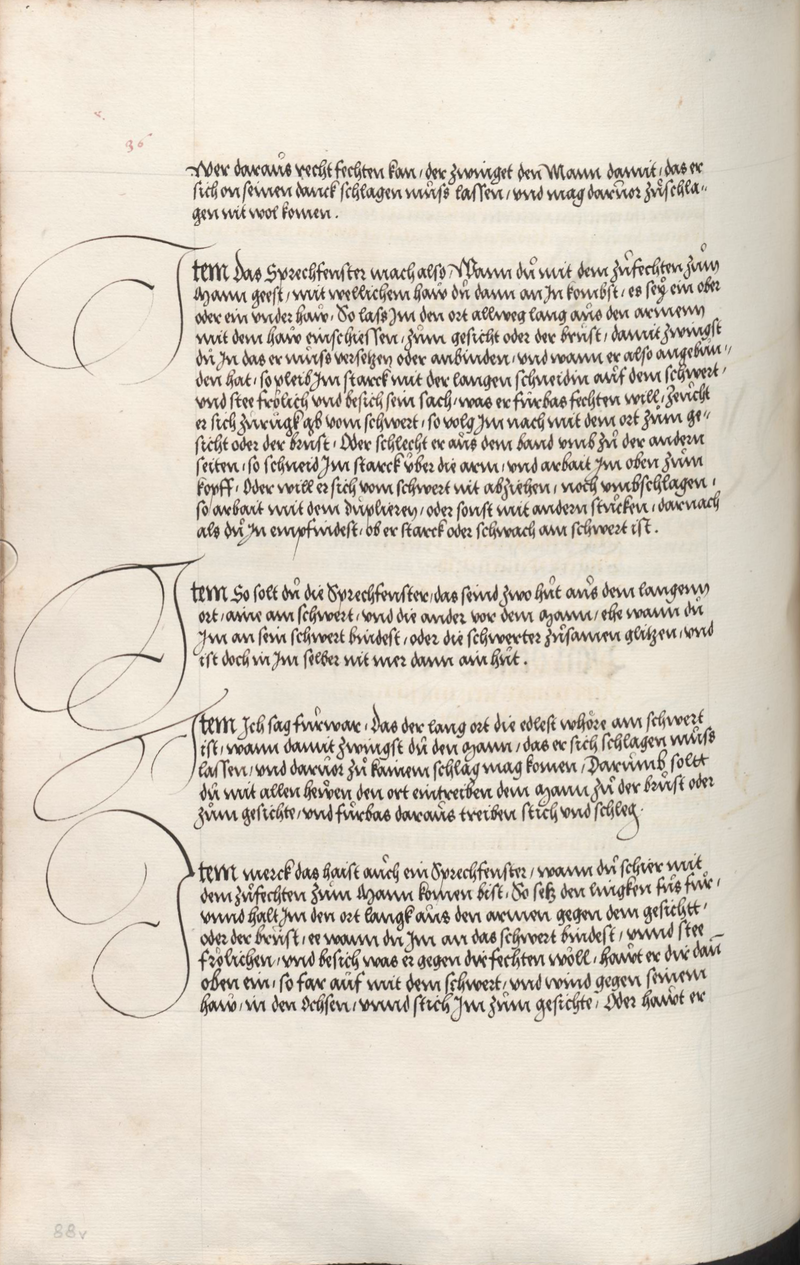 36
Wer daraus recht fechten kan / der zwinget den Mann damit / das er
sich on seinen danck schlagen muss lassen / vnd mag daruor zuschla-
gen nit wol komen.
Item das Sprechfenster mach also / Wann du mit dem zufechten zum
Mann geest / mit wellichem haw du dann an In kombst / es sey ein ober
oder ein vnder haw / So lass Im den ort allweg lang aus den armenn
mit dem haw einschiessen / zum gesicht oder der brust / damit zwingst
du In das er muss versetzen oder anbinden / vnd wann er also angebun-
den hat / so pleib Im starck mit der langen schneidin auf dem schwert /
vnd stee frölich vnd besich sein sach / was er fürbas fechten will / Zeucht
er sich zurugk ab vom schwert / so volg Im nach mit dem ort zum ge-
sicht oder der brust / Oder schlecht er aus dem band vmb zu der andern
seiten / so schneid Im starck über die arm / vnd arbait Im oben zum
kopff / Oder will er sich vom schwert nit abziehen / noch vmbschlagen /
so arbait mit dem duplieren / oder sonst mit andern stucken / darnach
als du In empfindest / ob er starck oder schwach am schwert ist.
Item So solt du die Sprechfenster / das seind zwo hut aus dem langenn
ort / aine am schwert / vnd die ander vor dem Mann / ehe wann du
Im an sein schwert bindest / oder die schwerter zusamen glitzen / vnd
ist doch in Im selber nit mer dann ain hut.
Item Ich sag furwar / das der lang ort die edlest whöre am schwert
ist / wann damit zwingst du den Mann / das er sich schlagen muss
lassen / vnd daruor zu kainem schlag mag komen / Darumb soltt
du mit allen hewen den ort eintreiben dem Mann zu der brust oder
zum gesichte / vnd furbas daraus treiben stich vnd schleg.
Item merck das haist auch ein Sprechfenster / wann du schier mit
dem zufechten zum Mann komen bist / So setz den lingken fus fur /
vnnd halt Im den ort langk aus den armen gegen dem gesichtt /
oder der brust / ee wann du Im an das schwert bindest / vnnd stee
frölichen / vnd besich was er gegen dir fechten wöll / hawt er dir dan
oben ein / so far auf mit dem schwert / vnd wind gegen seinem
haw / in den Ochsen / vnnd stich Im zum gesichte / Oder hawt er
88v